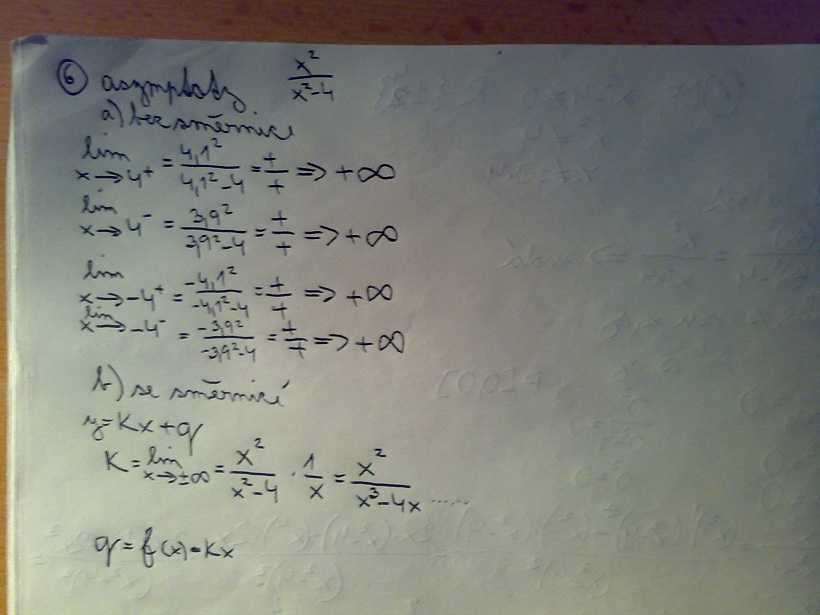 ⑥ asymptoty x²/(x²-4)
a) bez směrnice
lim x→4⁺ = 4,1²/(4,1²-4) = +/+ => +∞
lim x→4⁻ = 3,9²/(3,9²-4) = +/+ => +∞
lim x→-4⁺ = -4,1²/(-4,1²-4) = +/+ => +∞
lim x→-4⁻ = -3,9²/(-3,9²-4) = +/+ => +∞
b) se směrnicí
y=Kx+q
K = lim x→±∞ = x²/(x²-4) · 1/x = x²/(x³-4x) .....
q = f(x)-Kx